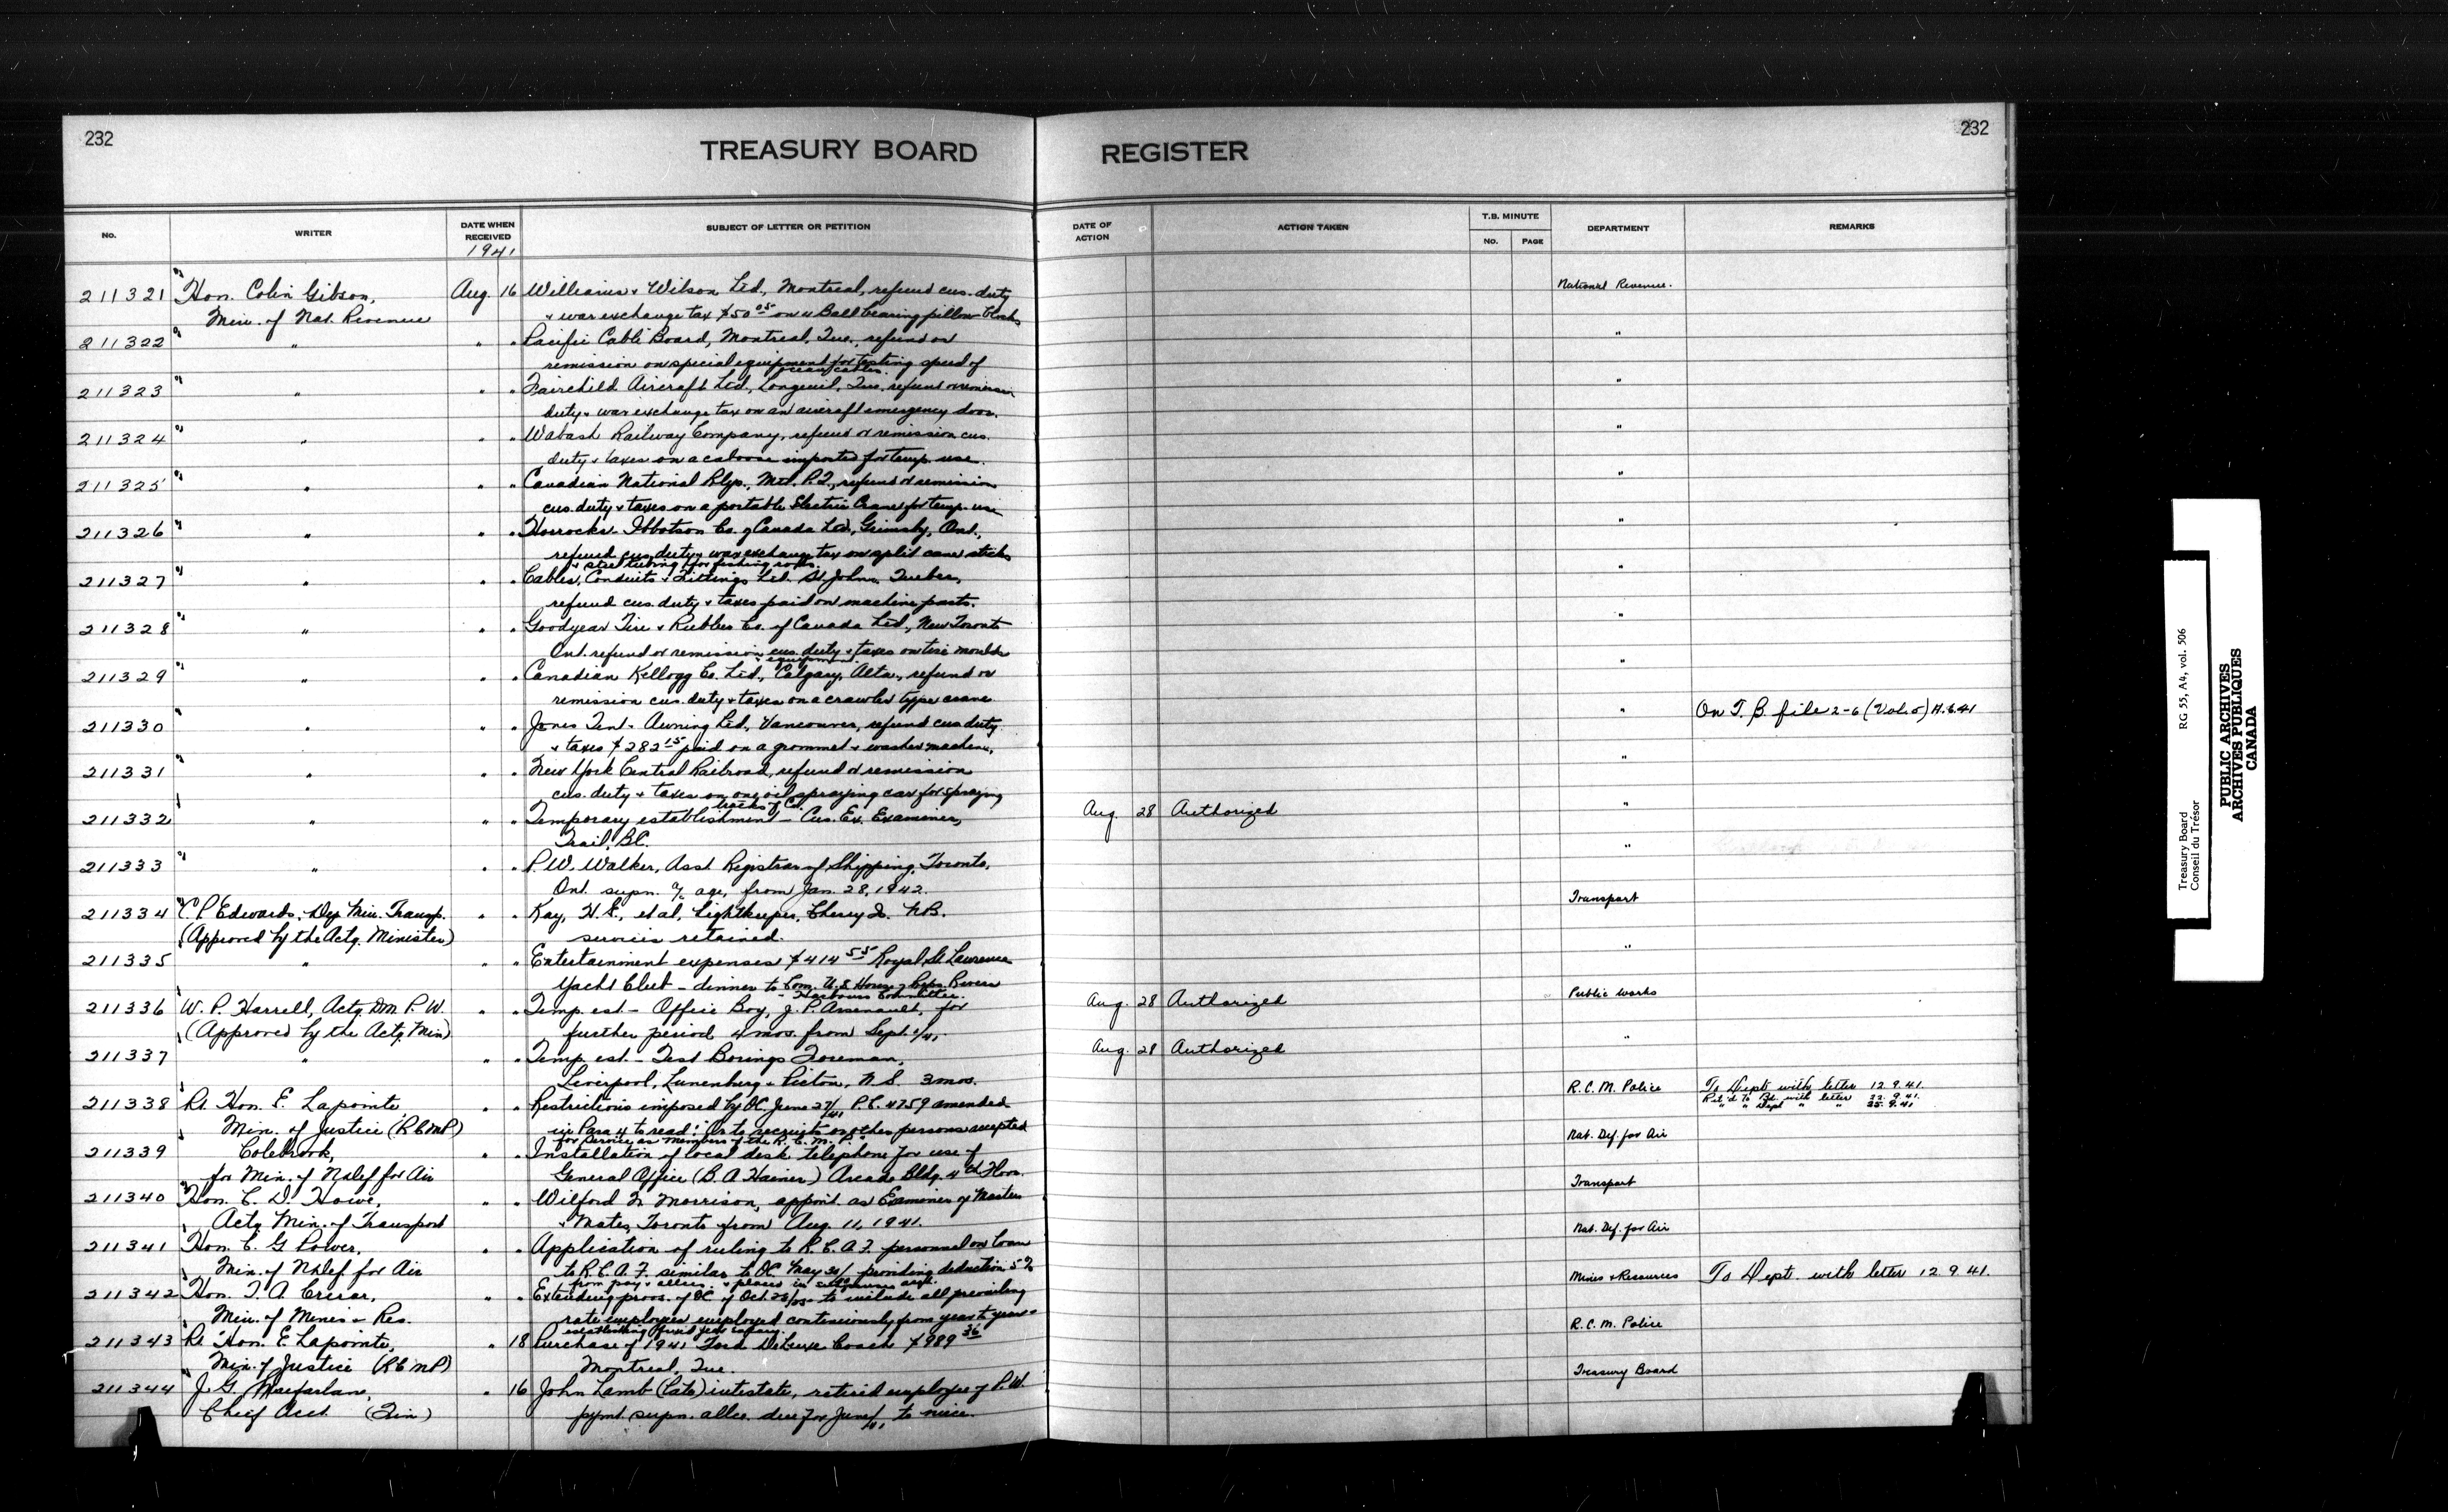 232
TREASURY BOARD REGISTER
232
No.
WRITER
DATE WHEN RECEIVED
1941
SUBJECT OF LETTER OR PETITION
DATE OF ACTION
ACTION TAKEN
T.B. MINUTE
NO. PAGE
DEPARTMENT
REMARKS
211321 Hon. Colin Gibson, Aug. 16 Williams & Wilson Ltd., Montreal, refund cus. duty National Revenue.
Min. of Nat. Revenue & war exchange tax $50 05 on 4 Ball bearing pillow blocks
211322 " " " Pacific Cable Board, Montreal, Que., refund or "
remission on special equipment for testing speed of
ocean cables.
211323 " " " Fairchild Aircraft Ltd., Longeuil, Que. refund or remission "
duty & war exchange tax on an aircraft emergency door.
211324 " " " Wabash Railway Company, refund or remission cus. "
duty & taxes on a caboose imported for temp. use.
211325 " " " Canadian National Rlys., Mtl. P.Q., refund or remission "
cus. duty & taxes on a portable Electric Crane for temp. use
211326 " " " Horrocks-Ibbotson Co. of Canada Ltd., Grimsby, Ont., "
refund cus. duty & war exchange tax on split cane sticks
& steel tubing for fishing rods.
211327 " " " Cables, Conduits & Fittings Ltd. St. Johns, Quebec, "
refund cus. duty & taxes paid on machine parts.
211328 " " " Goodyear Tire & Rubber Co. of Canada Ltd., New Toronto "
Ont. refund or remission cus. duty & taxes on tire moulds
& equipment.
211329 " " " Canadian Kellogg Co. Ltd., Calgary, Alta., refund or "
remission cus. duty & taxes on a crawler type crane
211330 " " " Jones Tent & Awning Ltd., Vancouver, refund cus duty " On T.B. file 2-6 (Vol. 5)
& taxes $282 15 paid on a grommet & washer machine,
211331 " " " New York Central Railroad, refund or remission "
cus. duty & taxes on one oil spraying car for spraying
tracks of Co.
211332 " " " Temporary establishment - Cus. Ex. Examiner, Aug. 28 Authorized "
Trail, B.C.
211333 " " " P. W. Walker, Asst. Registrar of Shipping, Toronto, "
Ont. supn. a/c age, from Jan. 28, 1942.
211334 C. P. Edwards, Dep. Min. Transp. " " Kay, H. S., et al, Lightkeeper, N.B. Transport
(Approved by the Actg. Minister) services retained.
211335 " " " Entertainment expenses $414 55 Royal St. Lawrence "
Yacht Club - dinner to Com. U.S. House of Reps Rivers
- Harbours Committee.
211336 W. P. Harrell, Actg. DM P. W. " " Temp. est - Office Boy, J. P. Arsenault, for Aug. 28 Authorized Public Works
(Approved by the Actg. Min) further period 4 mos. from Sept. 1/41.
211337 " " " Temp. est. - Test Borings Foreman, Aug. 28 Authorized "
Liverpool, Lunenburg & Pictou, N.S. 3 mos.
211338 Rt. Hon. E. Lapointe, " " Restrictions imposed by OC. June 27/41 P.C. 4759 amended R.C.M. Police To Dept. with letter 12.9.41.
Ret'd to Bd. with letter 22.9.41.
" " Dept " " 25.9.41
Min. of Justice (RCMP) in Para 4 to read: "Or to recruits or other persons accepted
for service as members of the R.C.M.P."
211339 Colebrook, " " Installation of local desk telephone for use of Nat. Def. for Air
for Min. of N.Def for Air General Office (B. A Hainer) Arcade Bldg. 4th Floor.
211340 Hon. C. D. Howe, " " Wilford N. Morrison, appoint. as Examiner of Masters Transport
Actg Min. of Transport & Mates, Toronto from Aug. 11, 1941.
211341 Hon. C. G. Power, " " Application of ruling to R.C.A.F. personnel on loan Nat. Def. for Air
Min. of N.Def. for Air to R.C.A.F. similar to OC. May providing deduction 5%
from pay & allces. & placed in
211342 Hon. T. A. Crerar, " " Extending provs. of OC of Oct. to include all prevailing Mines & Resources To Dept. with letter 12.9.41.
Min. of Mines & Res. rate employees employed continuously from year to year
establishing
211343 Rt. Hon. E. Lapointe, " 18 Purchase of 1941 Ford DeLuxe Coach $989 36 R.C.M. Police
Min. of Justice (RCMP) Montreal, Que.
211344 J. G. Macfarlane, " 16 John Lamb (late) intestate, retired employee of P.W. Treasury Board
Chief Acct. (Fin) pymt. supn. allce. due for June/41, to niece.
RG 55, A4, vol. 506
Treasury Board
Conseil du Trésor
PUBLIC ARCHIVES
ARCHIVES PUBLIQUES
CANADA